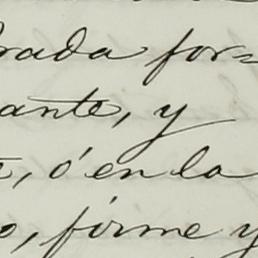 rada for=
ante, y
, ó en la
o, firme y